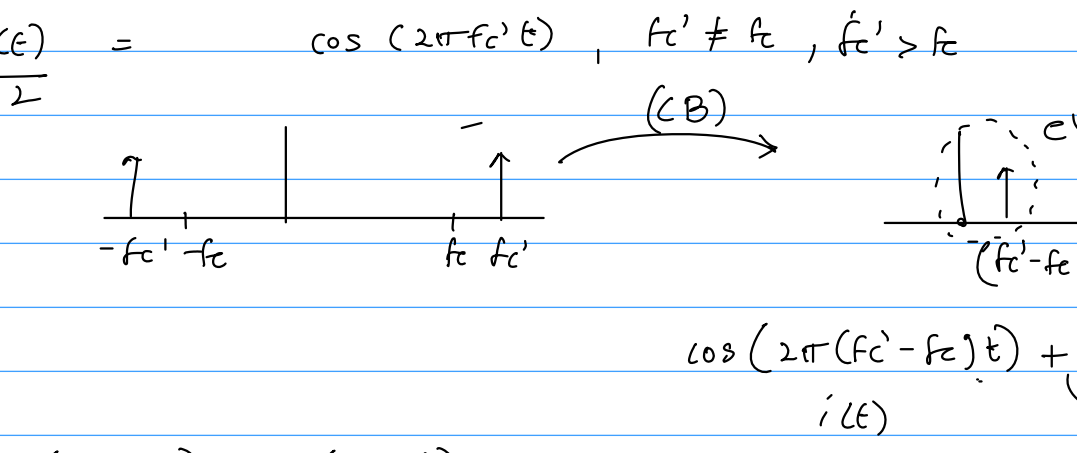 (t) = cos (2πfc't) , fc' ≠ fc , fc' > fc
2
(CB)
e'
-fc' -fc fc fc' -(fc'-fc
cos(2π(fc'-fc)t) +
i(t)